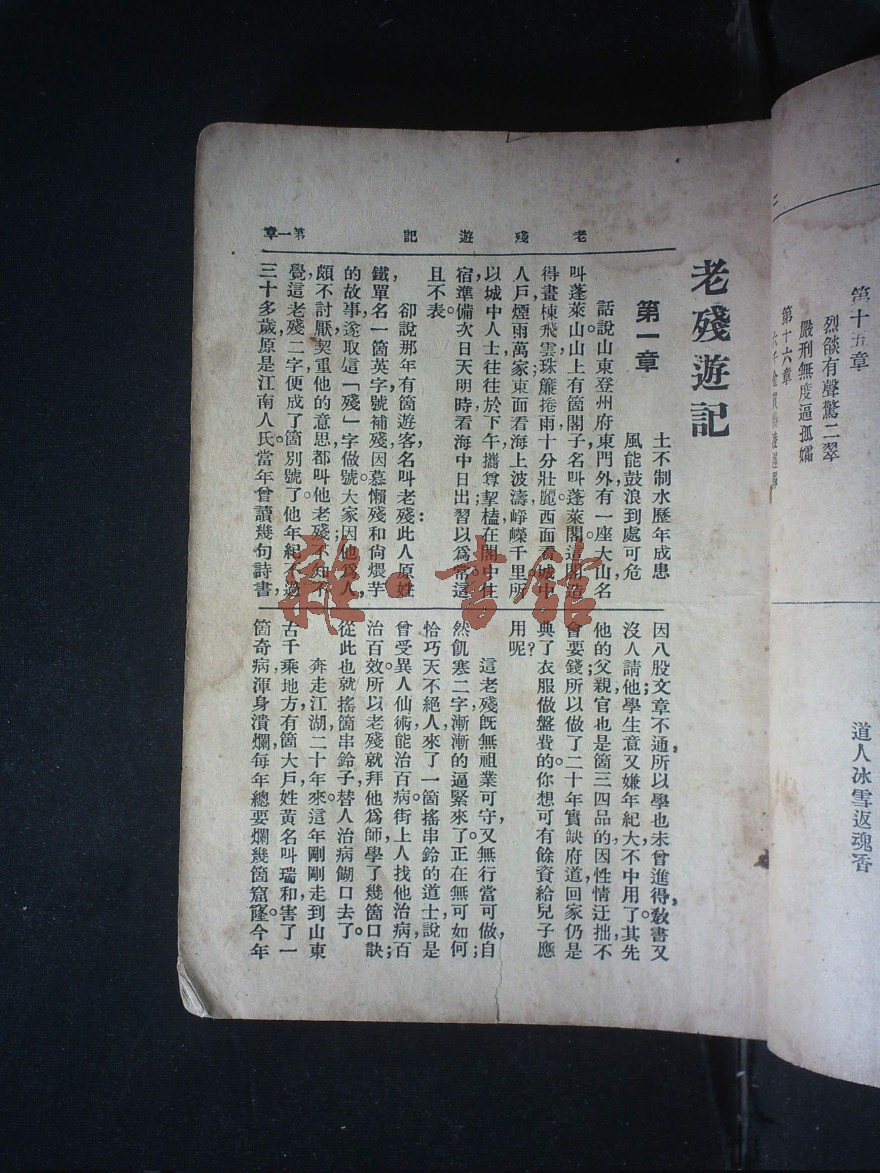 第十五章
烈燄有聲驚二翠
嚴刑無度逼孤孀
第十六章
道人冰雪返魂香
二
老殘遊記
第一章
老殘遊記
第一章
土不制水歷年成患
風能鼓浪到處可危
話說山東登州府東門外有一座大山名
叫蓬萊山山上有箇閣子名叫蓬萊閣這閣造
得畫棟飛雲珠簾捲雨十分壯麗。西面看城中
人戶煙雨萬家;東面看海上波濤崢嶸千里所
以城中人士往往於下午攜尊挈榼在閣中住
宿準備次日天明時看海中日出習以爲常。這
且不表。
卻說那年有箇遊客名叫老殘此人原姓
鐵單名一箇英字號補殘因慕懶殘和尙煨芋
的故事遂取這「殘」字做號大家因他爲人
頗不討厭契重他的意思都叫他老殘不知不
覺這老殘二字便成了箇別號了他年紀不過
三十多歲原是江南人氏。當年曾讀幾句詩書,
因八股文章不通,所以學也未曾進得,敎書又
沒人請他學生意又嫌年紀大不中用了。其先
他的父親官也是箇三四品的因性情迂拙不
會要錢所以做了二十年實缺府道回家仍是
典了衣服做盤費的。你想可有餘資給兒子應
用呢?
這老殘旣無祖業可守,又無行當可做,自
然飢寒二字漸漸的逼緊來了。正在無可如何;
恰巧天不絕人,來了一箇搖串鈴的道士,說是
曾受異人仙術,能治百病,街上人找他治病,百
治百效。所以老殘就拜他爲師,學了幾箇口訣;
從此也就搖箇串鈴子,替人治病餬口去了。
奔走江湖二十年來。這年剛剛走到山東
古千乘地方,有箇大戶,姓黃,名叫瑞和,害了一
箇奇病,渾身潰爛,每年總要爛幾箇窟窿。今年
雜·書館